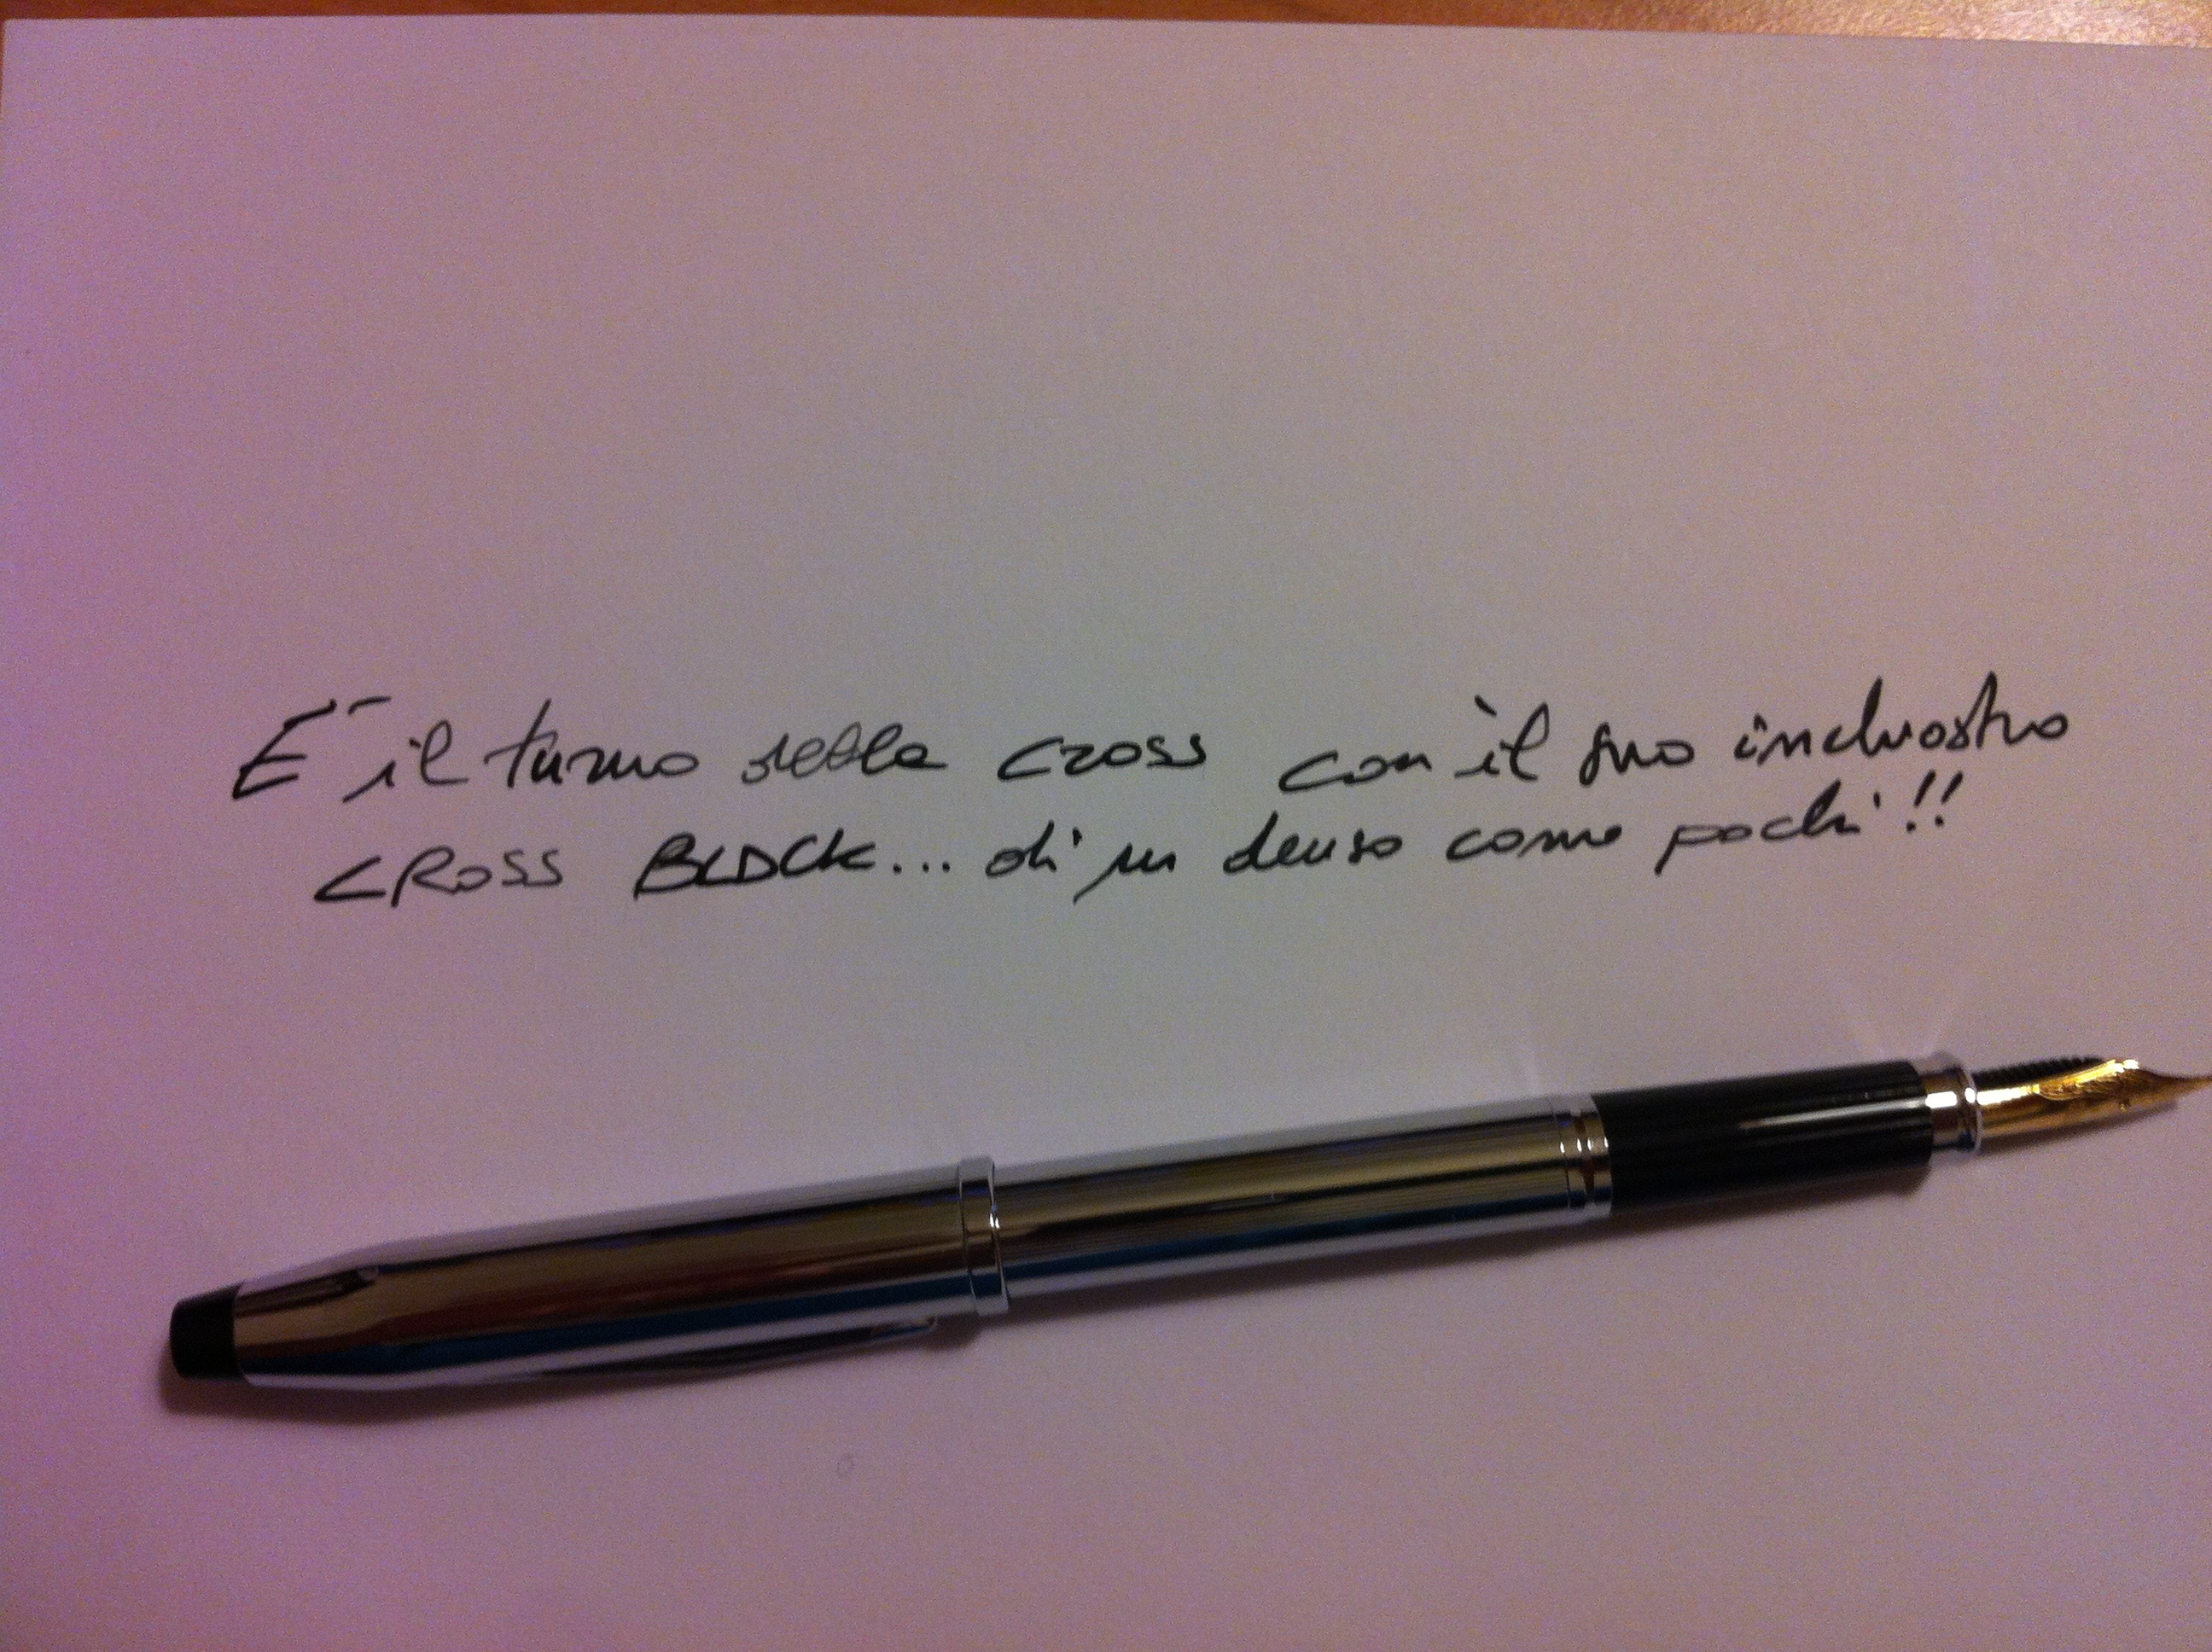 E' il turno della Cross con il suo inchiostro
CROSS BLACK... di un denso come pochi!!